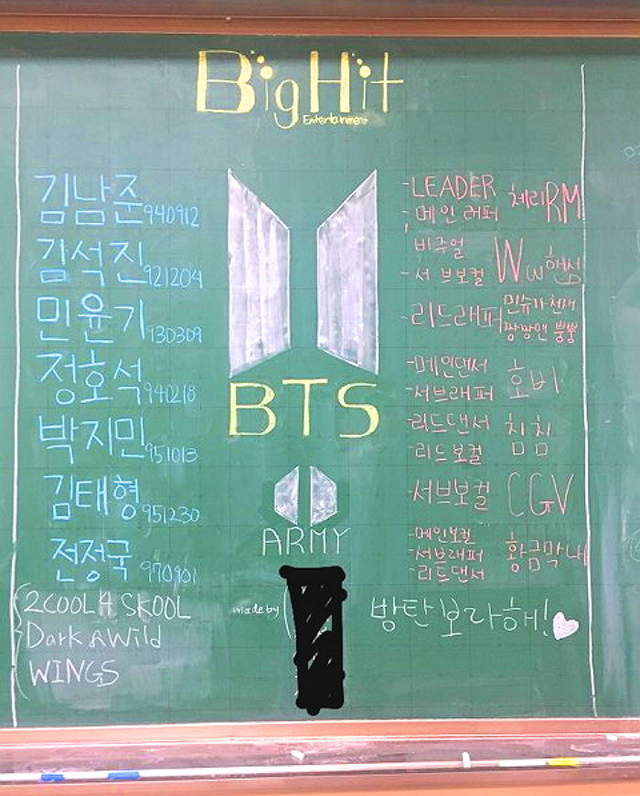 BigHit
Entertainment
김남준 940912
김석진 921204
민윤기 930309
정호석 940218
박지민 951013
김태형 951230
전정국 970901
2COOL 4 SKOOL
Dark & Wild
WINGS
BTS
ARMY
made by (
-LEADER
-메인 래퍼
체리RM
-비주얼
-서브보컬
Ww핸섬
-리드래퍼
민슈가 천재
짱짱맨 뿡뿡
-메인댄서
-서브래퍼
호비
-리드댄서
-리드보컬
침침
-서브보컬
CGV
-메인보컬
-서브래퍼
-리드댄서
황금막내
방탄 보라해!